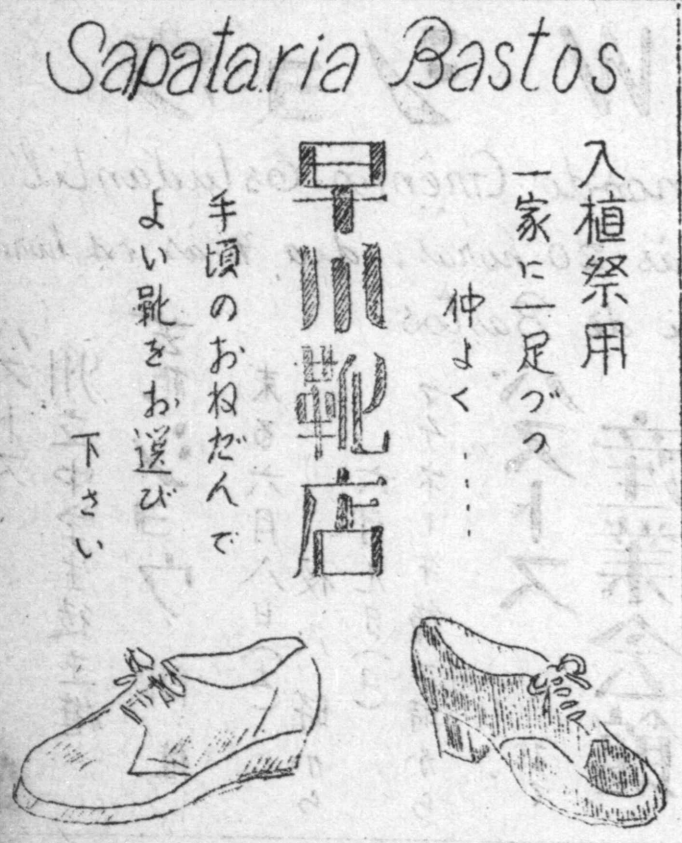 Sapataria Bastos
入植祭用
一家に一足づつ
仲よく……
早川靴店
手頃のおねだんで
よい靴をお選び
下さい